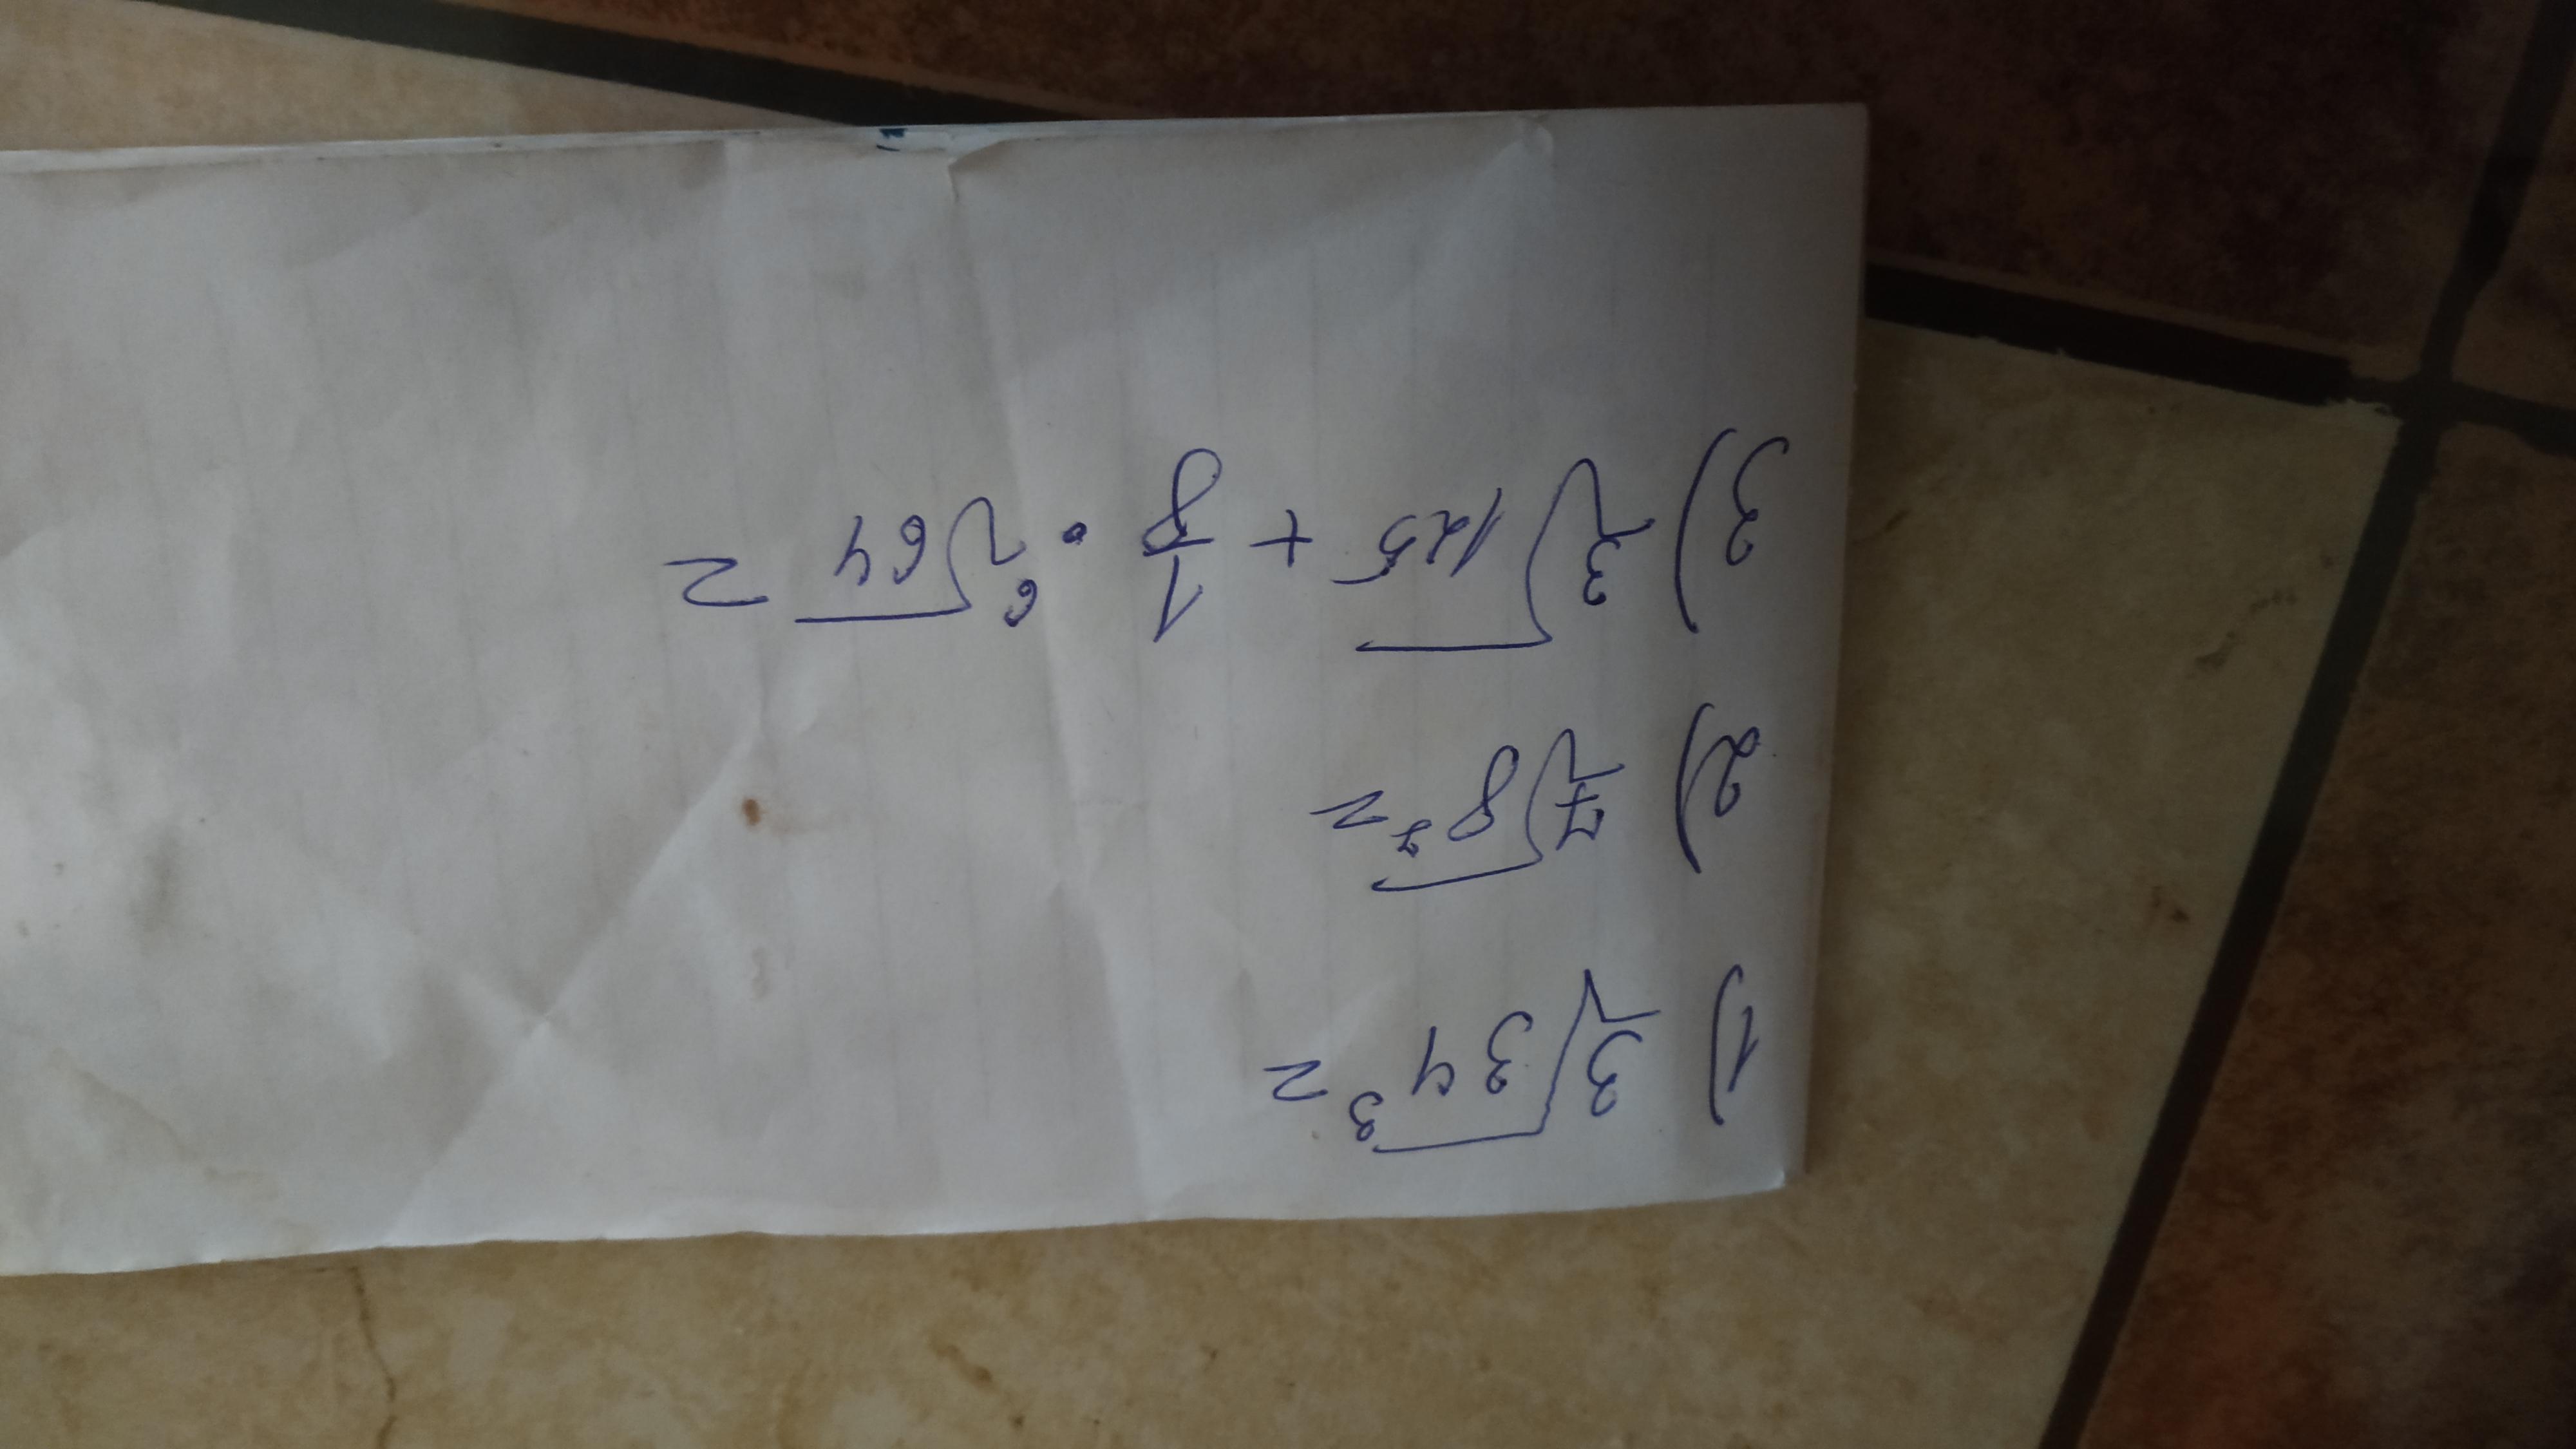 1) ³√34³ =
2) ⁷√8⁷ =
3) ³√125 + 1/8 · ⁶√64 =